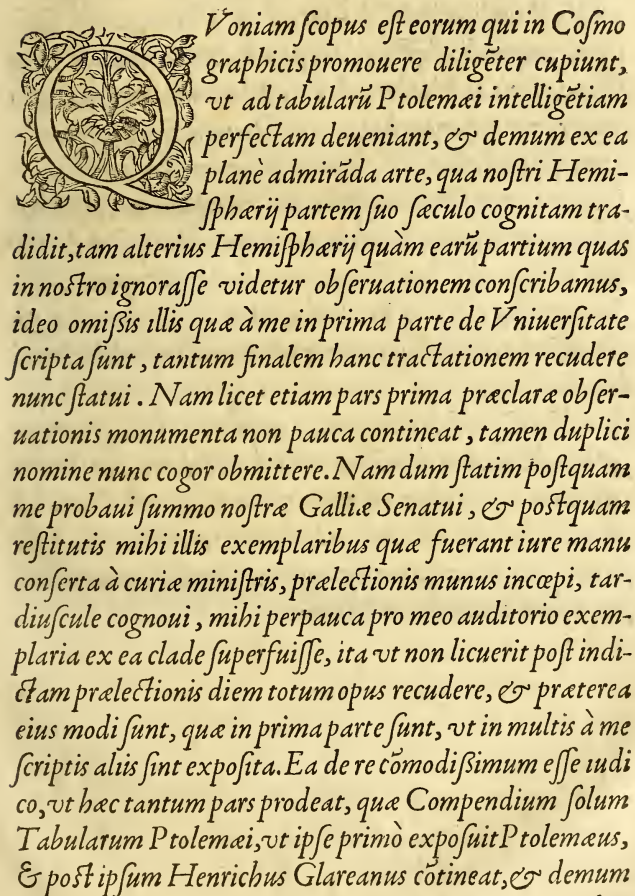 QVoniam ſcopus eſt eorum qui in Coſmo
graphicis promouere diligẽter cupiunt,
vt ad tabularũ Ptolemæi intelligẽtiam
perfectam deueniant, & demum ex ea
planè admirãda arte, qua noſtri Hemi-
ſphærij partem ſuo ſæculo cognitam tra-
didit, tam alterius Hemiſphærij quàm earũ partium quas
in noſtro ignoraſſe videtur obſeruationem conſcribamus,
ideo omiſsis illis quæ à me in prima parte de Vniuerſitate
ſcripta ſunt, tantum finalem hanc tractationem recudere
nunc ſtatui. Nam licet etiam pars prima præclaræ obſer-
uationis monumenta non pauca contineat, tamen duplici
nomine nunc cogor obmittere. Nam dum ſtatim poſtquam
me probaui ſummo noſtræ Galliæ Senatui, & poſtquam
reſtitutis mihi illis exemplaribus quæ fuerant iure manu
conſerta à curiæ miniſtris, prælectionis munus incœpi, tar-
diuſcule cognoui, mihi perpauca pro meo auditorio exem-
plaria ex ea clade ſuperfuiſſe, ita vt non licuerit poſt indi-
ctam prælectionis diem totum opus recudere, & præterea
eius modi ſunt, quæ in prima parte ſunt, vt in multis à me
ſcriptis aliis ſint expoſita. Ea de re cõmodiſsimum eſſe iudi
co, vt hæc tantum pars prodeat, quæ Compendium ſolum
Tabularum Ptolemæi, vt ipſe primò expoſuit Ptolemæus,
& poſt ipſum Henrichus Glareanus cõtineat, & demum